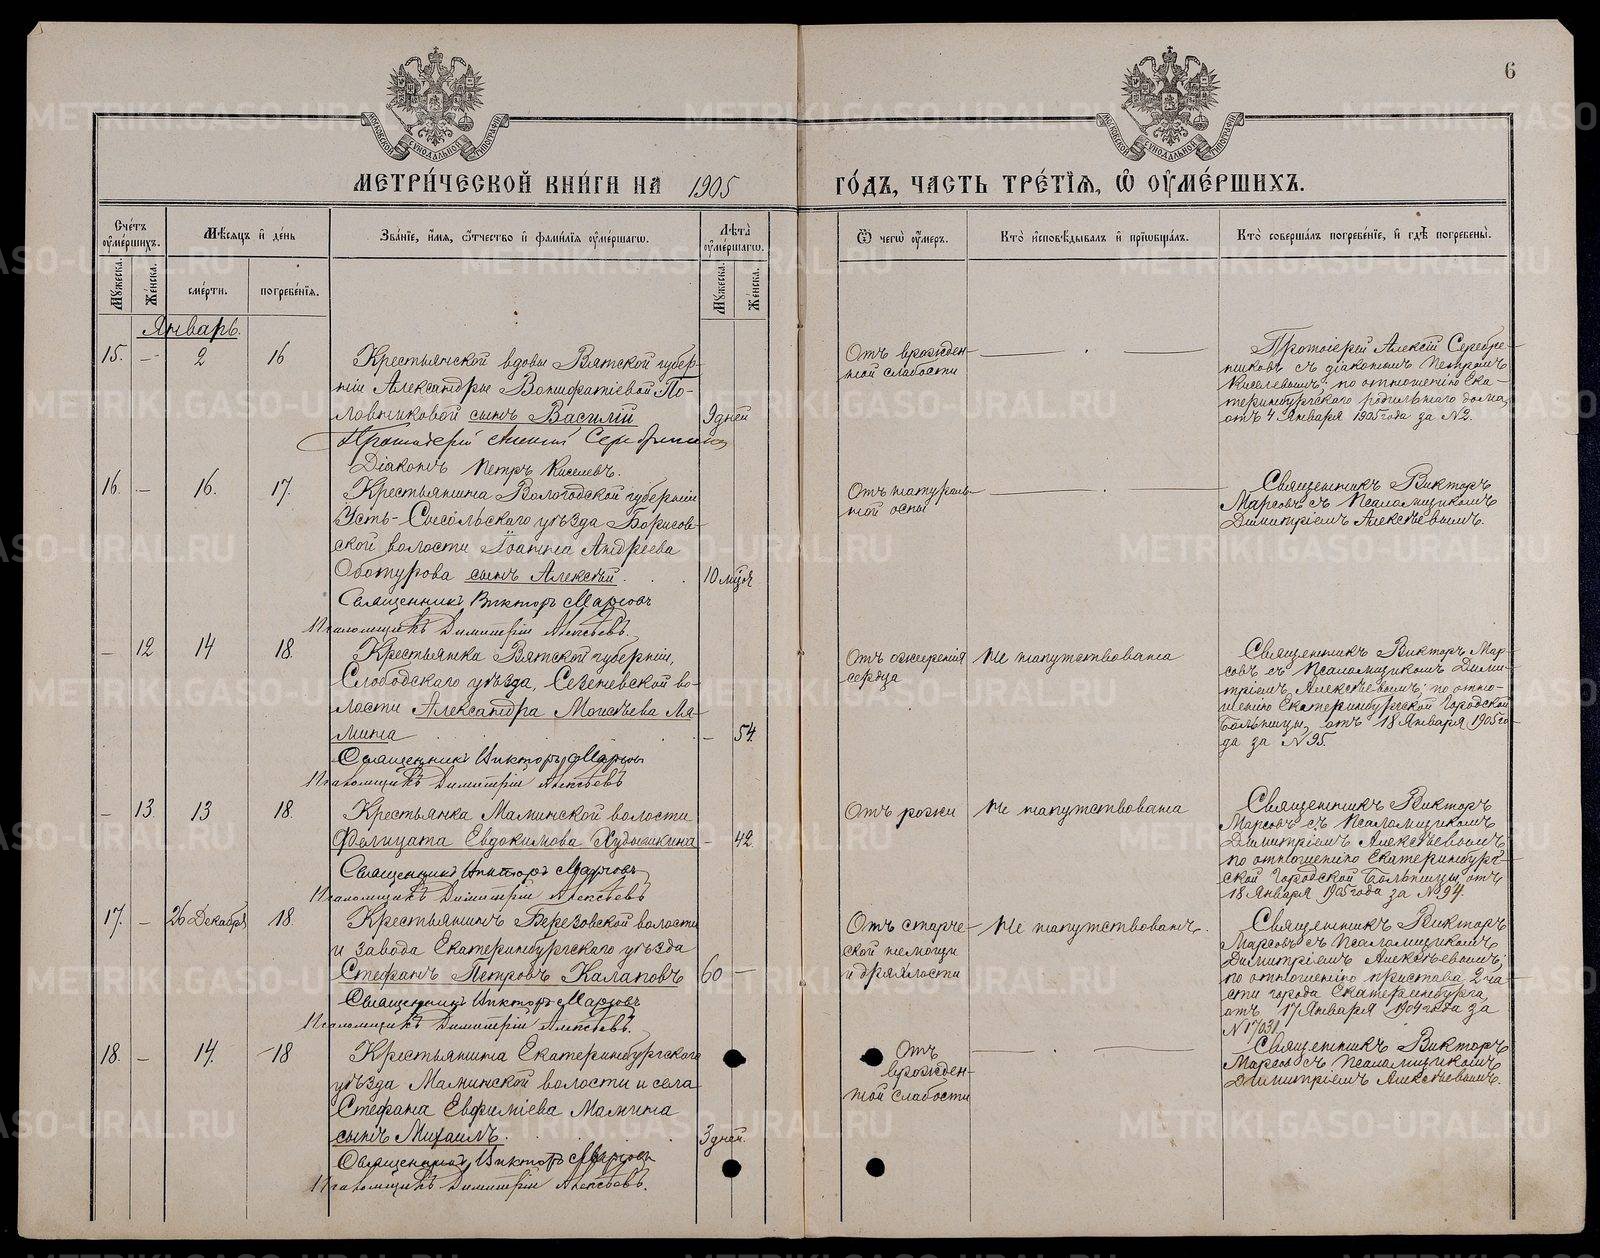 6
МОСКОВСКОЙ СУНОДАЛЬНОЙ ТИПОГРАФІИ
МОСКОВСКОЙ СУНОДАЛЬНОЙ ТИПОГРАФІИ
МЕТРИ́ЧЕСКОЙ КНИ́ГИ НА 1905 ГО́ДЪ, ЧАСТЬ ТРЕ́ТІѦ, Ѽ ОУМЕ́РШИХЪ.
Сче́тъ оуме́ршихъ.
Мѣ́сяцъ и҆ де́нь
Зва́ніе, и҆́мя, ѻ҆́тчество и҆ фами́лія оуме́ршагѡ.
Лѣ́та оуме́ршагѡ.
Ѿ чегѡ̀ оу҆́меръ.
Кто̀ и҆сповѣ́дывалъ и҆ прїѡбща́лъ.
Кто̀ соверша́лъ погребе́ніе, и҆ гдѣ̀ погребены̀.
Мужеска. Женска.
сме́рти. погребе́нія.
Мужеска. Женска.
Январь.
15. — 2 16
Крестьянской вдовы Вятской губер-
ніи Александры Вонифатіевой По-
ловниковой сынъ Василій 9 дней
Протоіерей Алексій Серебренниковъ
Діаконъ Петръ Киселевъ.
Отъ врожден-
ной слабости
Протоіерей Алексій Серебре-
никовъ съ діакономъ Петромъ
Киселевымъ; по отношенію Ека-
теринбургскаго родильнаго дома,
отъ 4 Января 1905 года за №2.
16. — 16. 17.
Крестьянина Вологодской губерніи
Усть-Сысольскаго уѣзда Борисов-
ской волости Іоанна Андреева
Оботурова сынъ Алексѣй. 10 мѣс.
Священникъ Викторъ Марсовъ
Псаломщикъ Димитрій Алексѣевъ.
Отъ натураль-
ной оспы
Священникъ Викторъ
Марсовъ съ Псаломщикомъ
Димитріемъ Алексѣевымъ.
— 12 14 18.
Крестьянка Вятской губерніи,
Слободскаго уѣзда, Сезеневской во-
лости Александра Моисѣева Ля-
мина — 54.
Священникъ Викторъ Марсовъ
Псаломщикъ Димитрій Алексѣевъ
Отъ ожиренія
сердца
Не напутствована
Священникъ Викторъ Мар-
совъ съ Псаломщикомъ Дими-
тріемъ Алексѣевымъ; по отно-
шенію Екатеринбургской Городской
Больницы, отъ 18 Января 1905 го-
да за №95.
— 13. 13 18.
Крестьянка Маминской волости
Фелицата Евдокимова Худышкина — 42.
Священникъ Викторъ Марсовъ
Псаломщикъ Димитрій Алексѣевъ
Отъ рожи
Не напутствована
Священникъ Викторъ
Марсовъ съ Псаломщикомъ
Димитріемъ Алексѣевымъ
по отношенію Екатеринбург-
ской Городской Больницы отъ
18 Января 1905 года за №94.
17. — 26 Декабря 18.
Крестьянинъ Березовской волости
и завода Екатеринбургскаго уѣзда
Стефанъ Петровъ Калаповъ 60 —
Священникъ Викторъ Марсовъ
Псаломщикъ Димитрій Алексѣевъ.
Отъ старче-
ской немощи
и дряхлости
Не напутствованъ.
Священникъ Викторъ
Марсовъ съ Псаломщикомъ
Димитріемъ Алексѣевымъ;
по отношенію пристава 2 ча-
сти города Екатеринбурга
отъ 17 Января 1904 года за
№17031.
18. — 14. 18
Крестьянина Екатеринбургскаго
уѣзда Маминской волости и села
Стефана Евфиміева Мамина
сынъ Михаилъ. 3 дней.
Священникъ Викторъ Марсовъ
Псаломщикъ Димитрій Алексѣевъ.
Отъ
врожден-
ной слабости
Священникъ Викторъ
Марсовъ съ Псаломщикомъ
Димитріемъ Алексѣевымъ.
METRIKI.GASO-URAL.RU